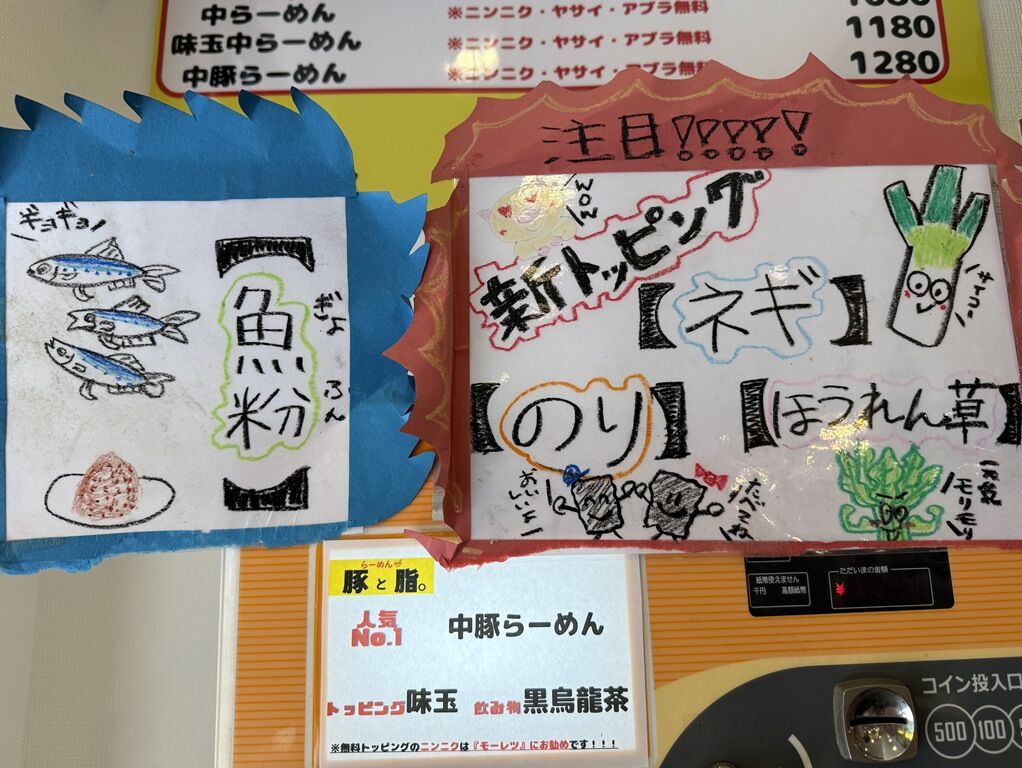 中らーめん ※ニンニク・ヤサイ・アブラ無料
味玉中らーめん ※ニンニク・ヤサイ・アブラ無料 1180
中豚らーめん ※ニンニク・ヤサイ・アブラ無料 1280
ギョギョ
【魚粉】
ぎょふん
注目!!!!!
WOW
新トッピング
【ネギ】
サイコー
【のり】
【ほうれん草】
おいしいよ
元気モリモリ
らーめん
豚と脂。
人気
No.1
中豚らーめん
トッピング味玉 飲み物黒烏龍茶
※無料トッピングのニンニクは『モーレツ』にお勧めです!!!
紙幣使えません
千円 高額紙幣
ただいまの金額
¥
コイン投入口
500 100